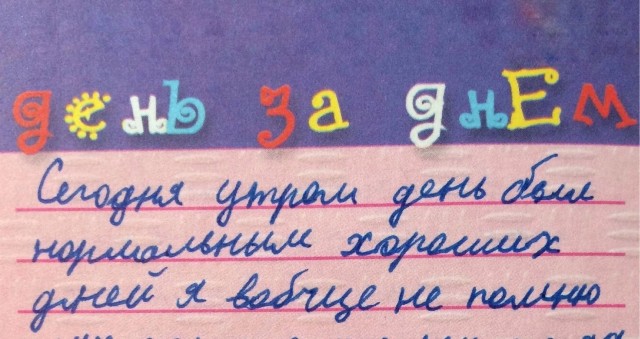 день за днем
Сегодня утром день был
нормальным хороших
дней я вобще не помню